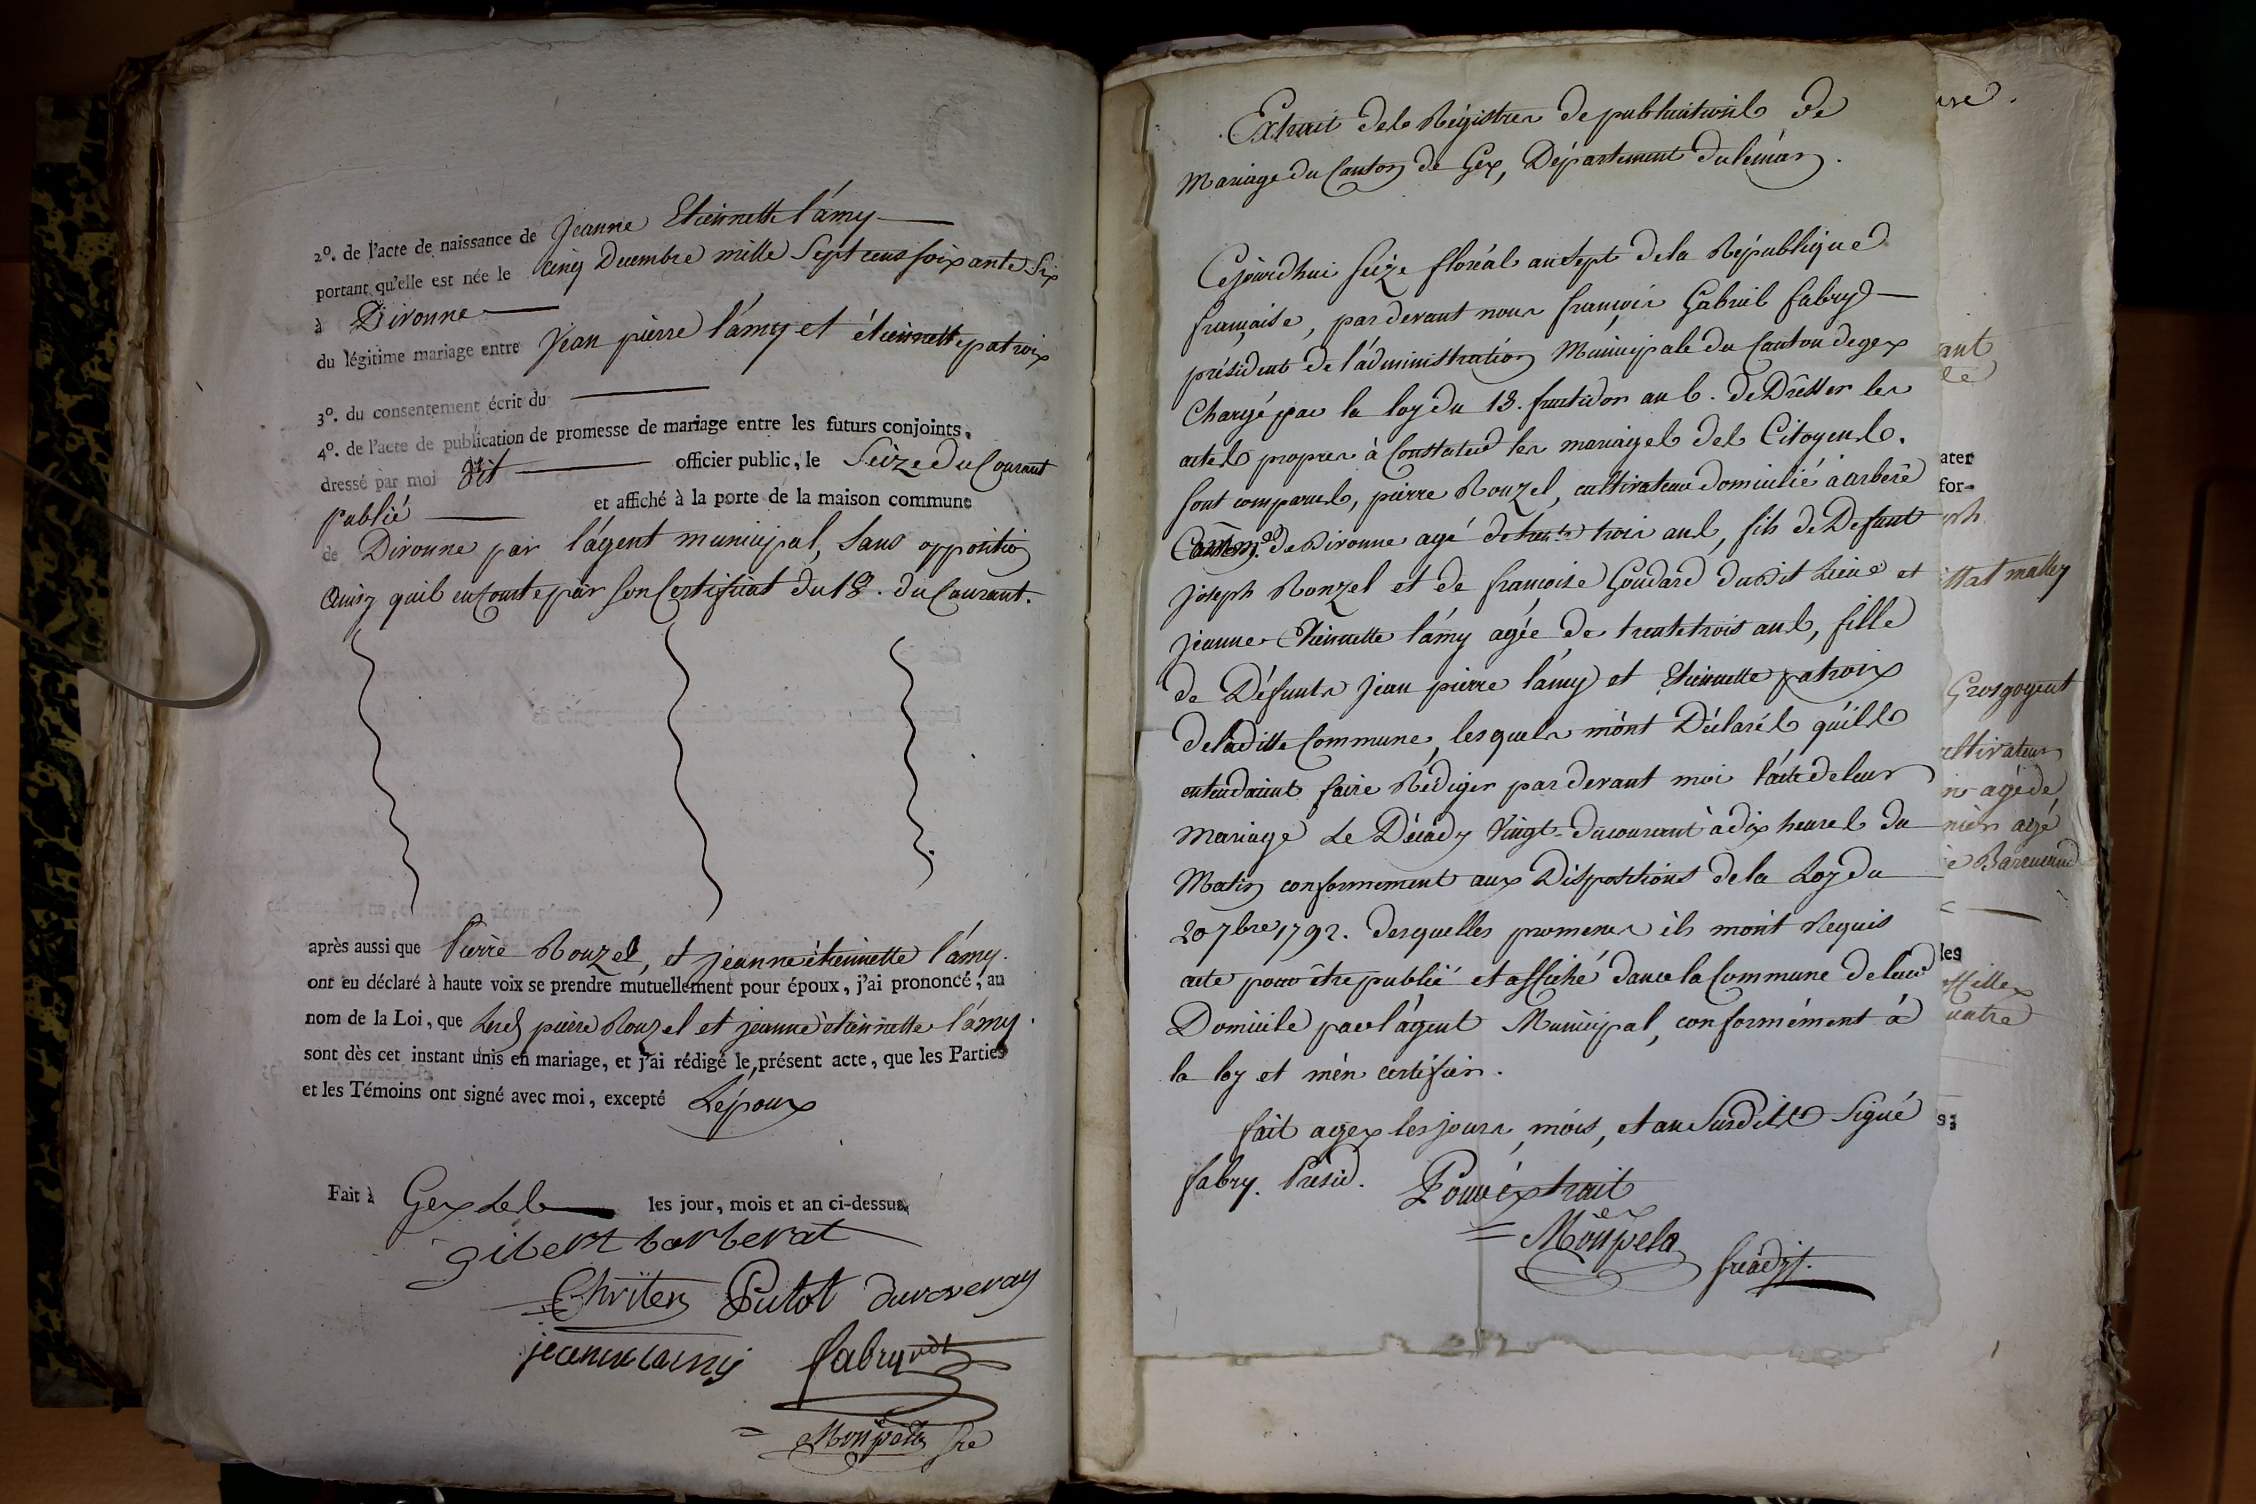 2º. de l'acte de naissance de Jeanne Etiennette l'ámy
portant qu'elle est née le cinq Decembre mille Sept cens soixante Six
à Divonne
du légitime mariage entre Jean pierre l'ámy et étiennette patroix
3º. du consentement écrit du
4º. de l'acte de publication de promesse de mariage entre les futurs conjoints,
dressé par moi dit officier public, le Seize du Courant
publié et affiché à la porte de la maison commune
de Divonne par l'ágent municipal, Sans opposition
ainsy quil en conste par Son Certificat du 18. du Courant.
après aussi que Pierre Rouzel, et jeanne étiennette l'ámy.
ont eu déclaré à haute voix se prendre mutuellement pour époux, j'ai prononcé, au
nom de la Loi, que Lesd. pierre Rouzel et jeanne étiennette l'ámy.
sont dès cet instant unis en mariage, et j'ai rédigé le présent acte, que les Parties
et les Témoins ont signé avec moi, excepté L'époux
Fait à Gex les les jour, mois et an ci-dessus,
gibert barberat
Christen Putot duroveray
jeanne lamy fabry pdt
Monpela Sre
Extrait des Régistres de publications de
Mariage du Canton de Gex, Département du léman.
Cejourdhui seize floréal an Sept de la République
française, par devant nous françois Gabriel fabry
président de l'administration Municipale du Canton de gex
Chargé par la loy du 13. fructidor an 6. de Dresser les
actes propres à Constater les mariages des Citoyens.
sont comparus, pierre Rouzel, cultivateur domicilié à arbere
Comm.ne de Divonne agé de trente trois ans, fils de Defunt
joseph Rouzel et de françoise Goudard dudit Lieu et
jeanne Etiennette l'ámy agée de trente trois ans, fille
de Défunts jean pierre l'ámy et Etiennette patroix
de ladite Commune, lesquels m'ont Déclarés qu'ils
entendoient faire Rédiger par devant moi l'acte de leur
mariage Le Décady Vingt du courant à dix heures du
Matin conformement aux Dispositions de la Loy du
20 7bre 1792. desquelles promesses ils m'ont Requis
acte pour être publié et affiché dans la Commune de leur
Domicile par l'ágent Municipal, conformément à
la loy et m'en certifier.
fait a gex les jour, mois, et an Susdits Signé
fabry. Présid. Pour éxtrait
Monpela
are.
ant
ater
for-
ttat malley
Grosgogent
ultivateur
agé de
agé
les
uatre
s;